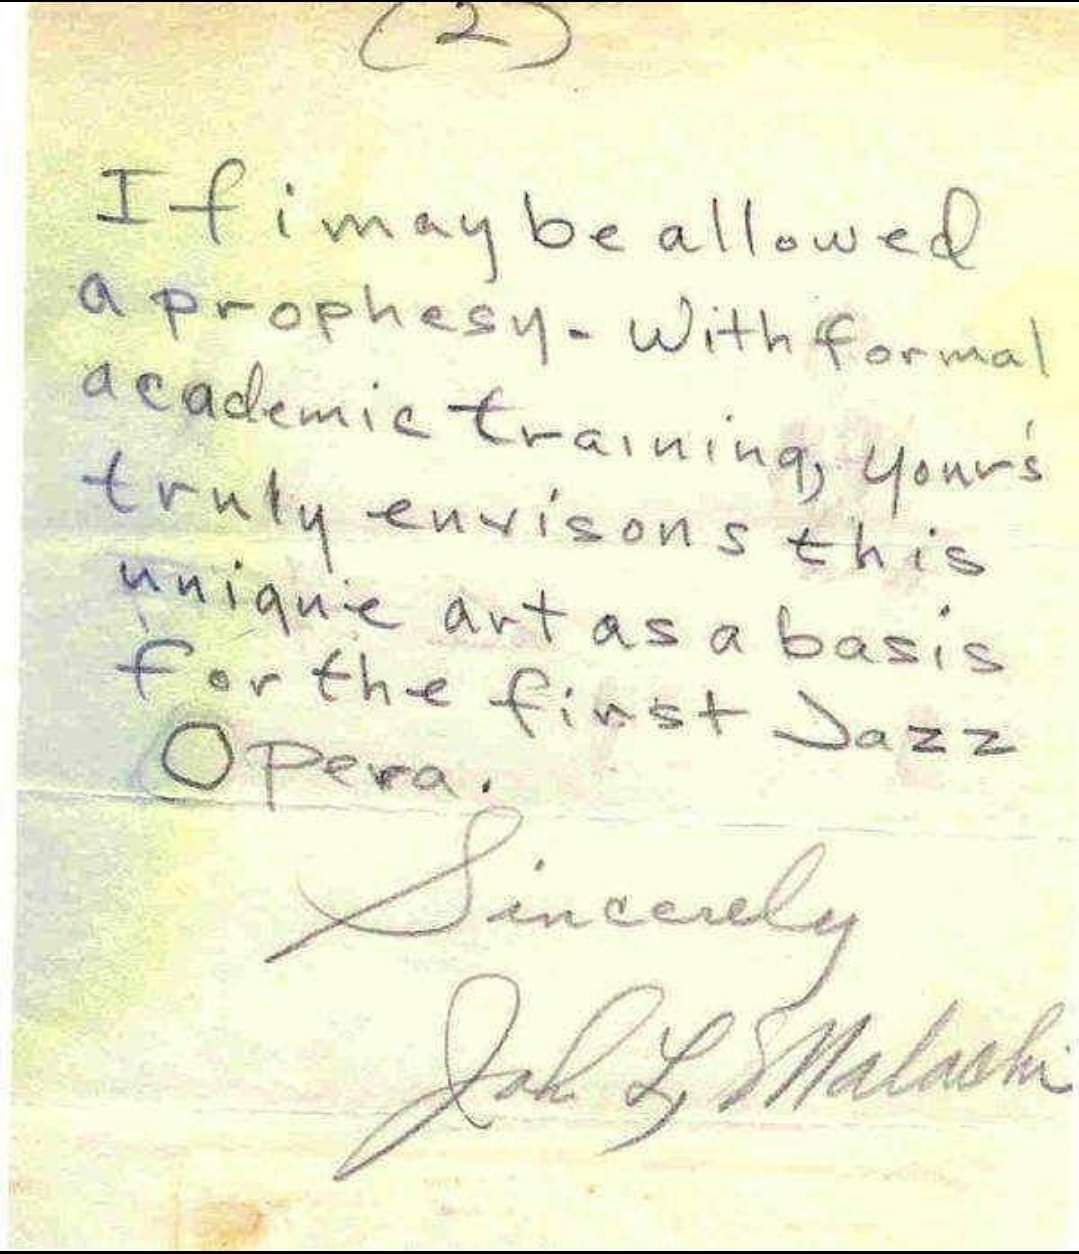 (2)
If i may be allowed
a prophesy - With formal
academic training, your's
truly envisons this
unique art as a basis
for the first Jazz
Opera.
Sincerely
John L. Malachi